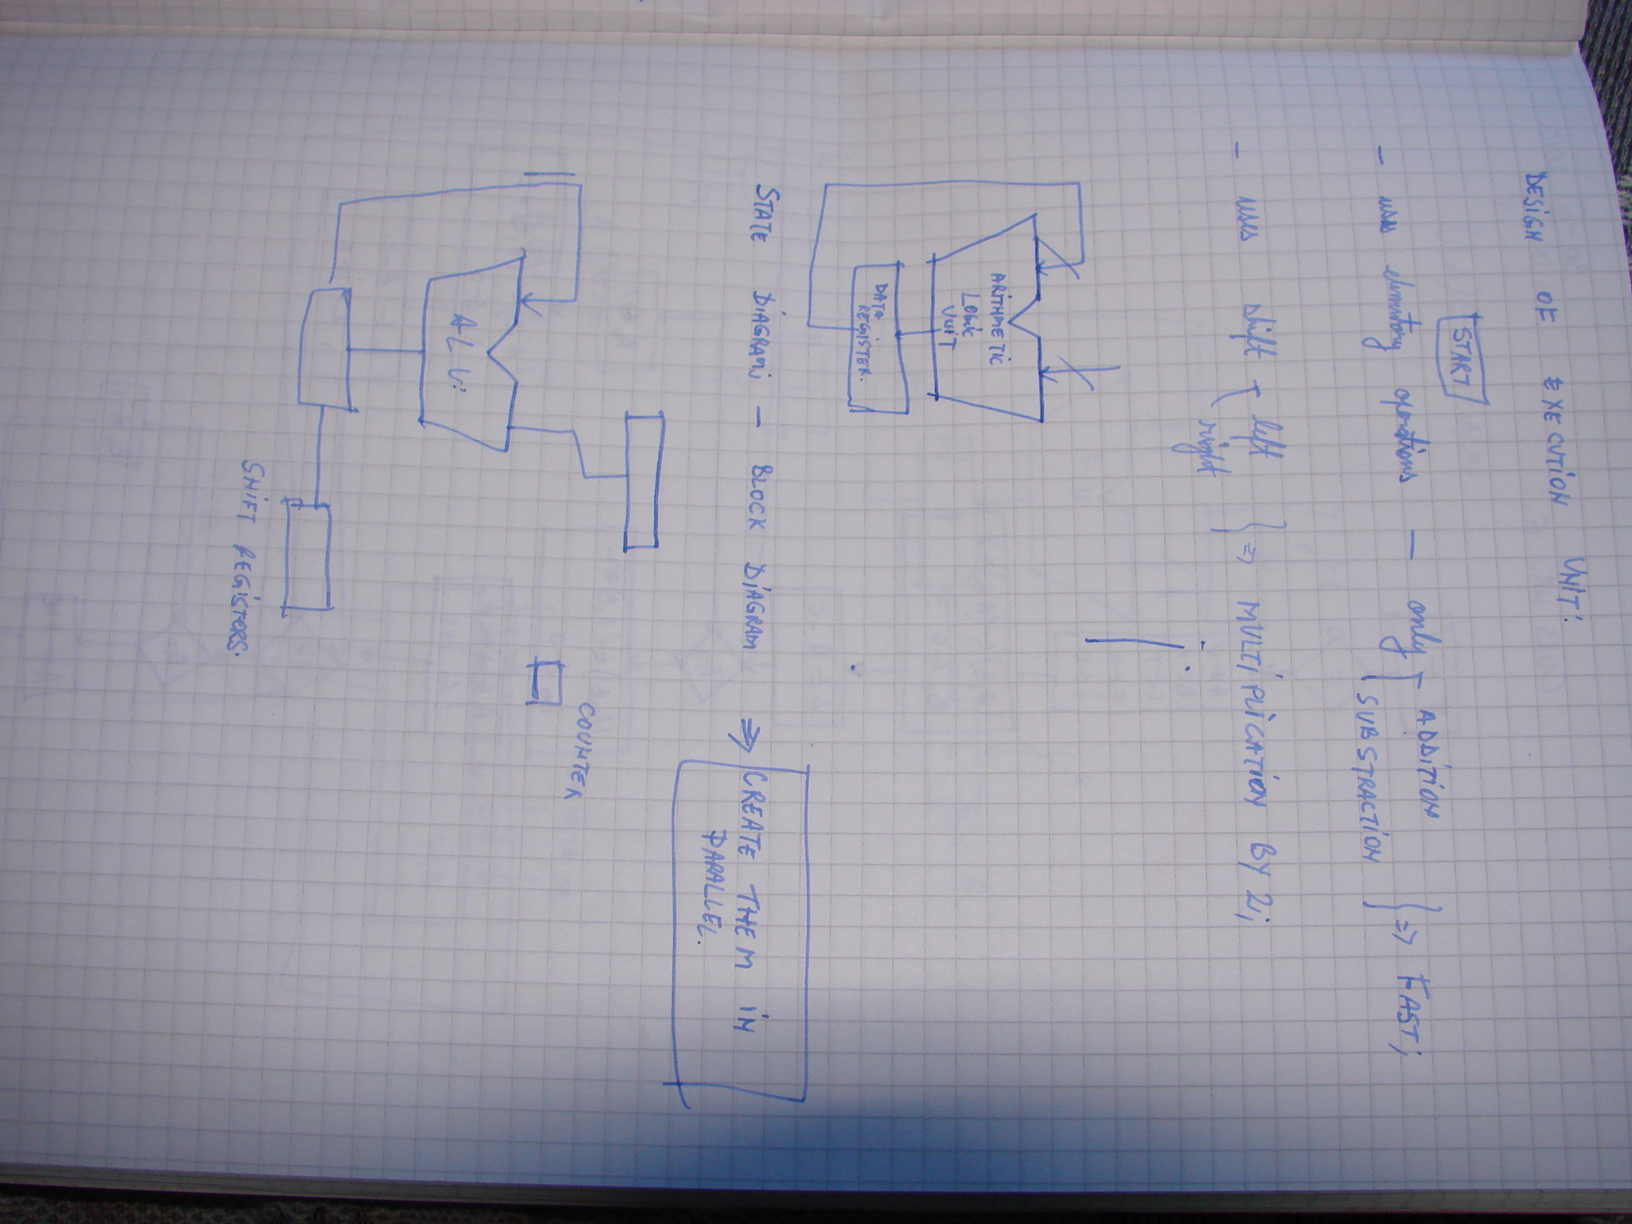 DESIGN OF EXECUTION UNIT:
START
- uses elementary operations - only { ADDITION
SUBSTRACTION } => FAST;
- uses shift { left
right } => MULTIPLICATION BY 2;
ARITHMETIC
LOGIC
UNIT
DATA
REGISTER.
STATE DIAGRAM - BLOCK DIAGRAM => CREATE THEM IN
PARALLEL.
COUNTER
ALU
SHIFT REGISTERS.